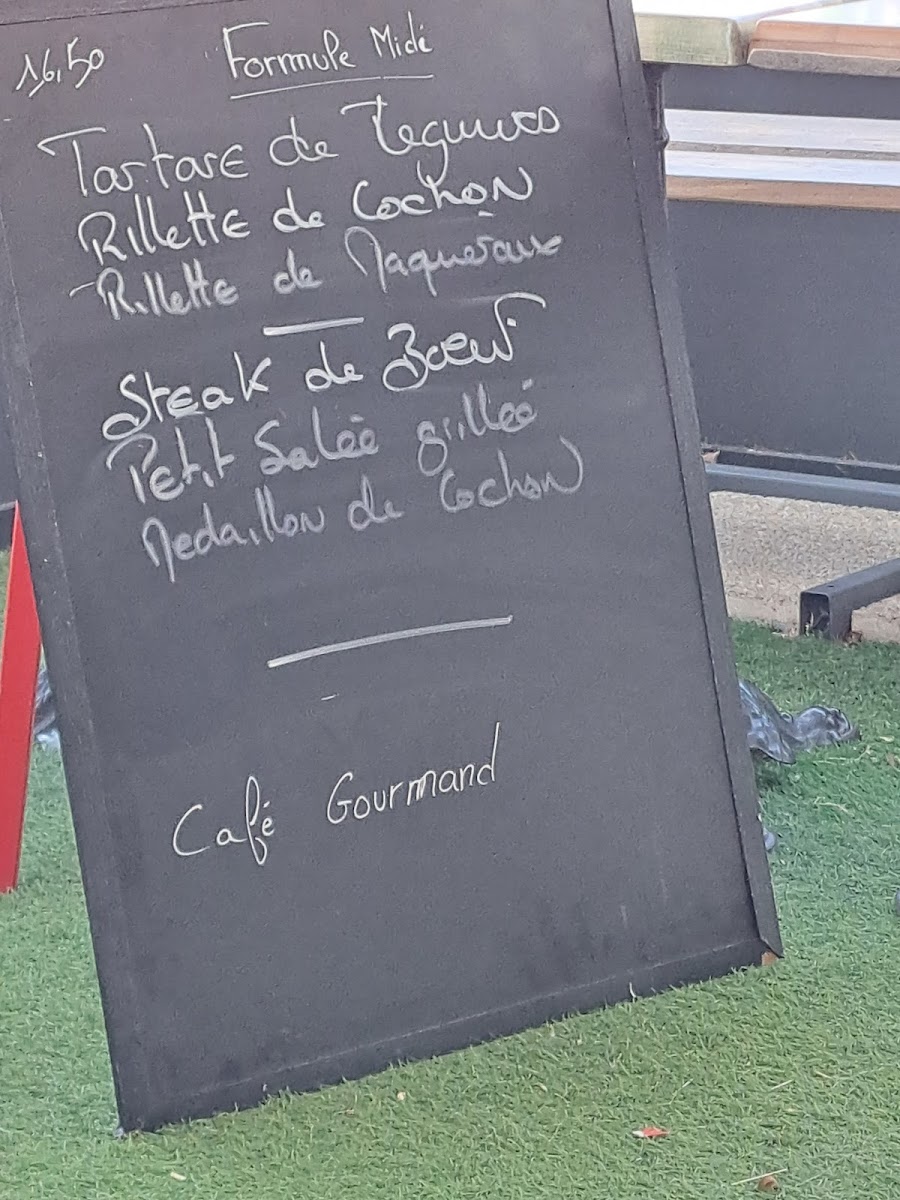 16,50
Formule Midi
Tartare de Legumes
Rillette de Cochon
Rillette de Maqueraux
Steak de Boeuf
Petit Salée grillée
Medaillon de Cochon
Café Gourmand